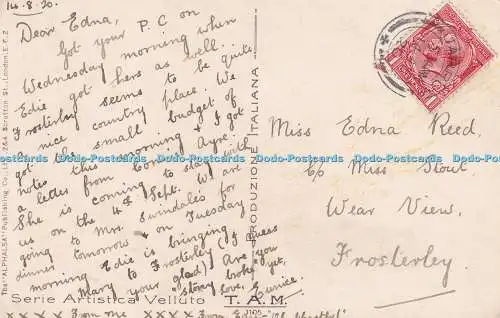 14.8.20.
Dear Edna,
Got your P.C on
Wednesday morning when
Edie got hers as well.
Frosterley seems to be quite
a nice country place. We
got the small budget of
notes this morning & I got
a letter from Corrie Ayre.
She is coming to stay with
us on the 4th Sept. We are
going to Mrs. Swindale's for
dinner tomorrow & on Tuesday
morning Edie is bringing
Mary to Frosterley (I guess
your glad) Are you
"stoney broke" yet,
Love, Eunice.
x x x x from me x x x x from
The "ALPHALSA" Publishing Co. Ltd. 2&4 Scrutton St., London, E.C.2
Serie Artistica Velluto T. A. M.
PRODUZIONE ITALIANA
Miss Edna Reed,
c/o Miss Stout,
Wear View,
Frosterley
Dado-Postcards Dado-Postcards Dado-Postcards Dado-Postcards Dado-Postcards